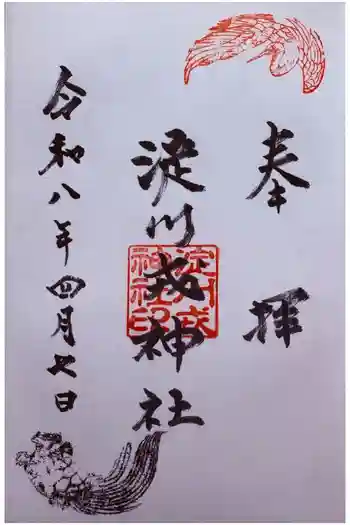 奉拝
淀川戎神社
淀川戎
神社印
令和八年四月七日